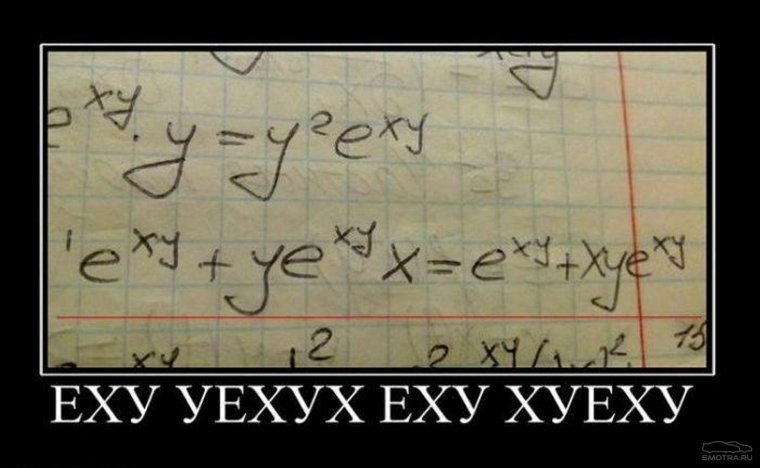 e^xy · y = y²e^xy
'e^xy + ye^xy x = e^xy + xye^xy
ЕХУ УЕХУХ ЕХУ ХУЕХУ
SMOTRA.RU